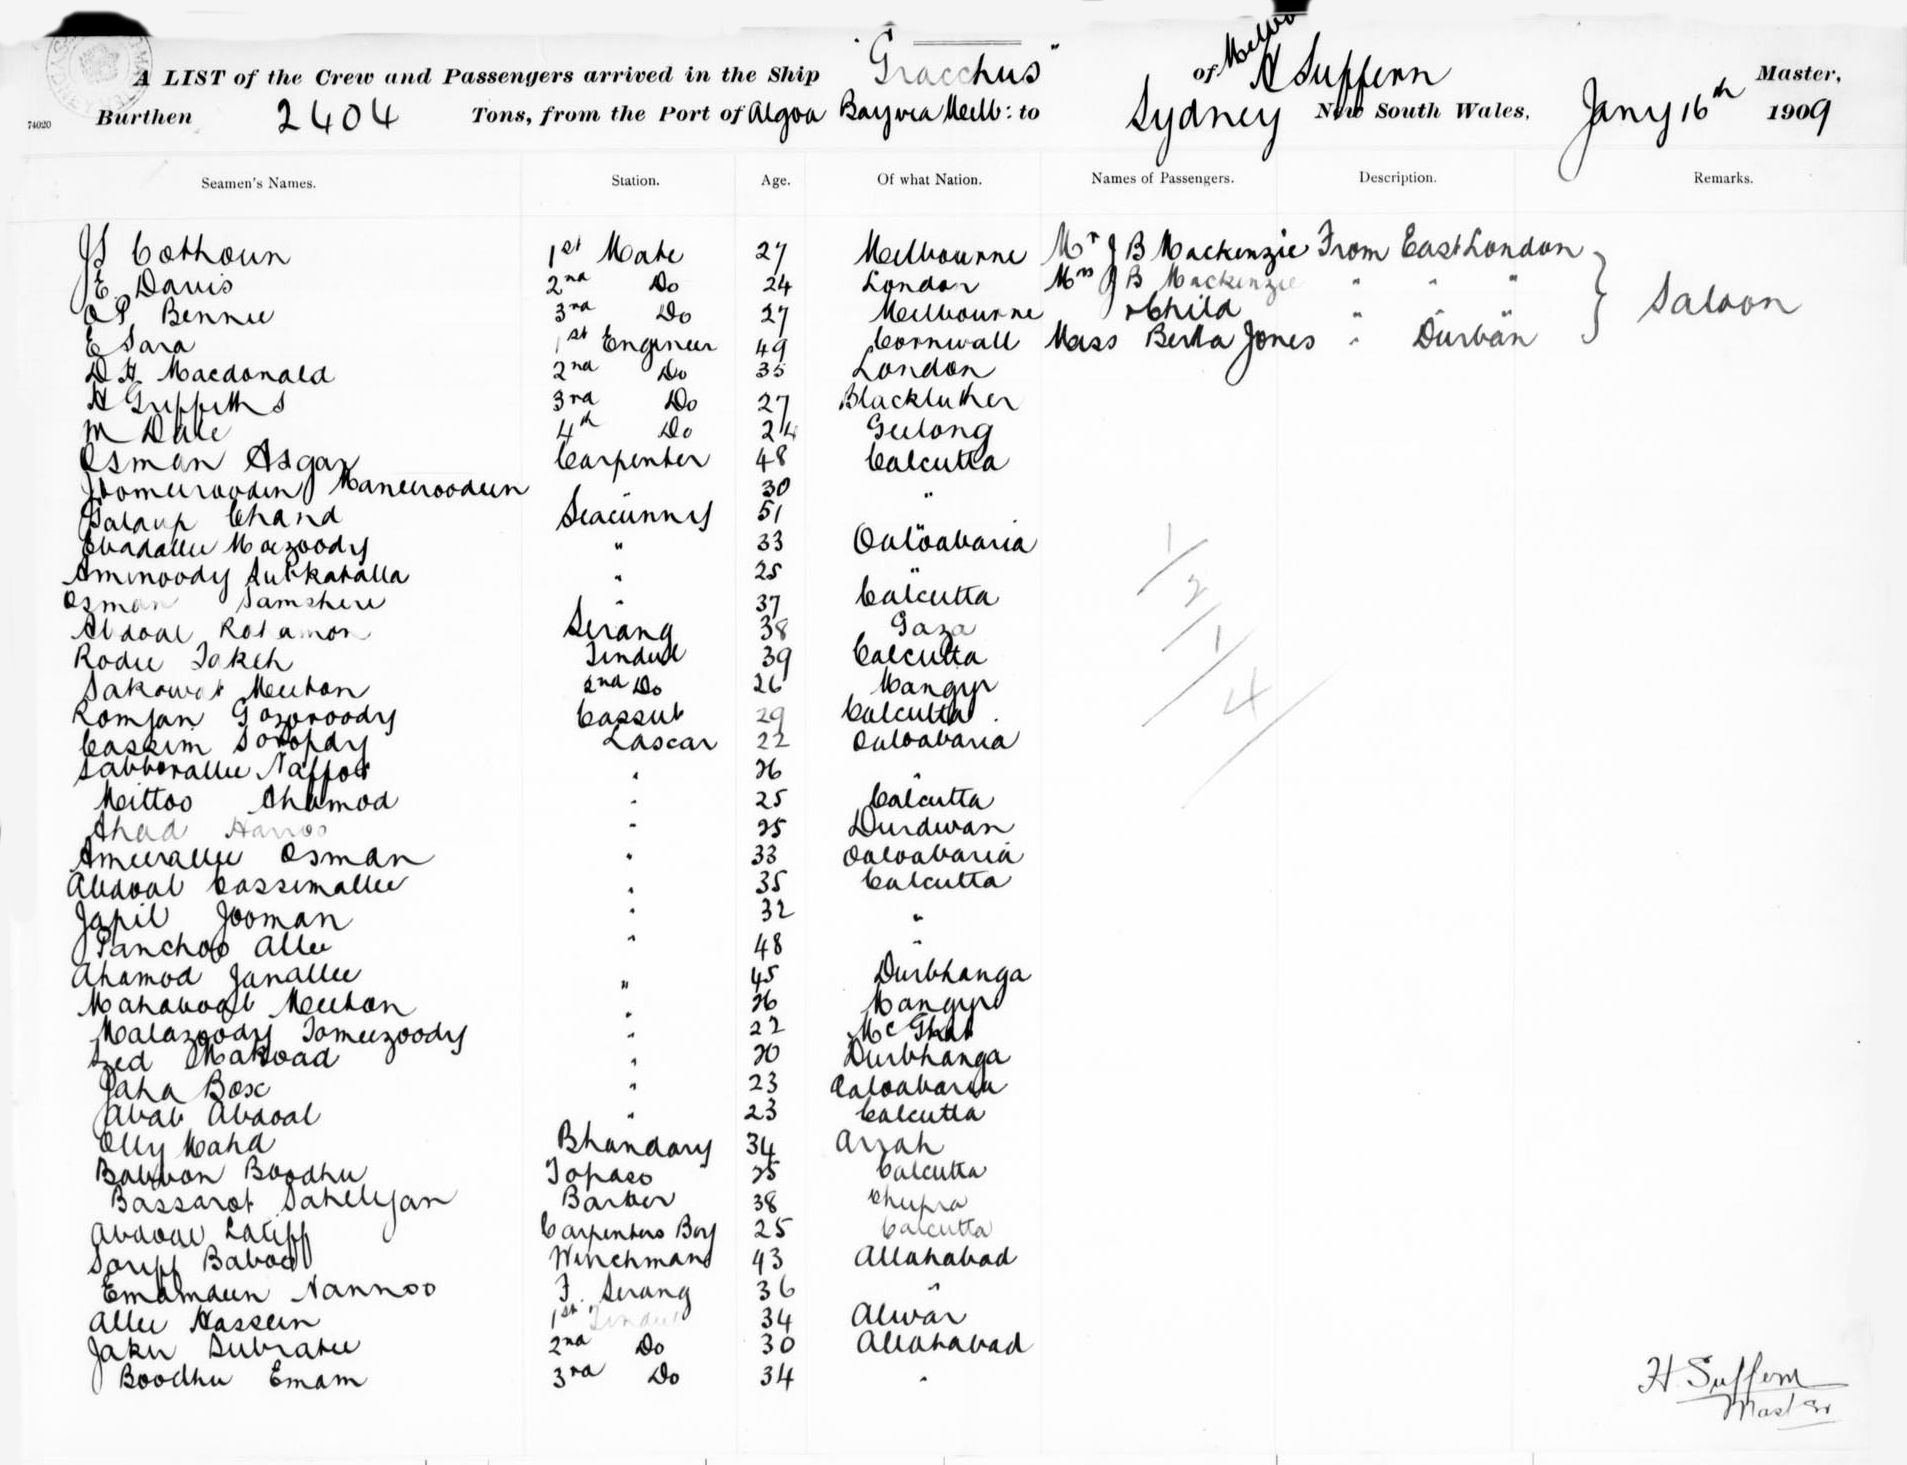 A LIST of the Crew and Passengers arrived in the Ship "Gracchus" of Melb. H Suffern Master,
74020 Burthen 2404 Tons, from the Port of Algoa Bay via Melb: to Sydney New South Wales, Jany 16th 1909
Seamen's Names. Station. Age. Of what Nation. Names of Passengers. Description. Remarks.
JS Colhoun 1st Mate 27 Melbourne Mr J B Mackenzie From East London
E. Davis 2nd Do 24 London Mrs J B Mackenzie " " " Saloon
A P Bennie 3rd Do 27 Melbourne + Child " " "
E Sara 1st Engineer 49 Cornwall Miss Berta Jones " Durban
D H Macdonald 2nd Do 35 London
H Griffiths 3rd Do 27
M Dale 4th Do 24 Geelong
Osman Asgar Carpenter 48 Calcutta
Joomeerooden Maneeroodeen 30 "
Chand Seacunnys 51 "
Ebadallee Moezoody " 33 Ooloobaria
Aminoody " 25 "
Osman Samshere " 37 Calcutta
Abdool Rohamon Serang 38 Gaza
Rodee Tokeh Tindul 39 Calcutta
Sakowot Meehon 2nd Do 26 Mangyr
Romjan Gozoroody Cassub 29 Calcutta
Cassim Lascar 22 Ooloobaria
Sabborallee Naffor " 26 "
Mittoo Ahamod " 25 Calcutta
Ahad Harroo " 25 Durdwan
Ameerallee Osman " 33 Ooloobaria
Abdool Cassimallee " 35 Calcutta
Japil Jooman " 32 "
Panchoo Allee " 48 "
Ahamod Janallee " 45 Durbhanga
Mahabool Meehon " 26 Mangyr
Malazoody Tomeezoody " 22
Szed Makoad " 20 Durbhanga
Jaha Box " 23 Ooloobaria
Abab Abdool " 23 Calcutta
Olly Mahd Bhandary 34 Arrah
Babbon Boodhu Topass 25 Calcutta
Bassarot Sahebjan Barber 38 Chupra
Abdool Latiff Carpenters Boy 25 Calcutta
Soriff Babool Winchman 43 Allahabad
Emamdeen Nannoo F. Serang 36 "
Allee Hassein 1st Tindul 34 Alwar
Jaku Subratee 2nd Do 30 Allahabad
Boodhu Emam 3rd Do 34 "
1/2/1/4/
H Suffern
Master